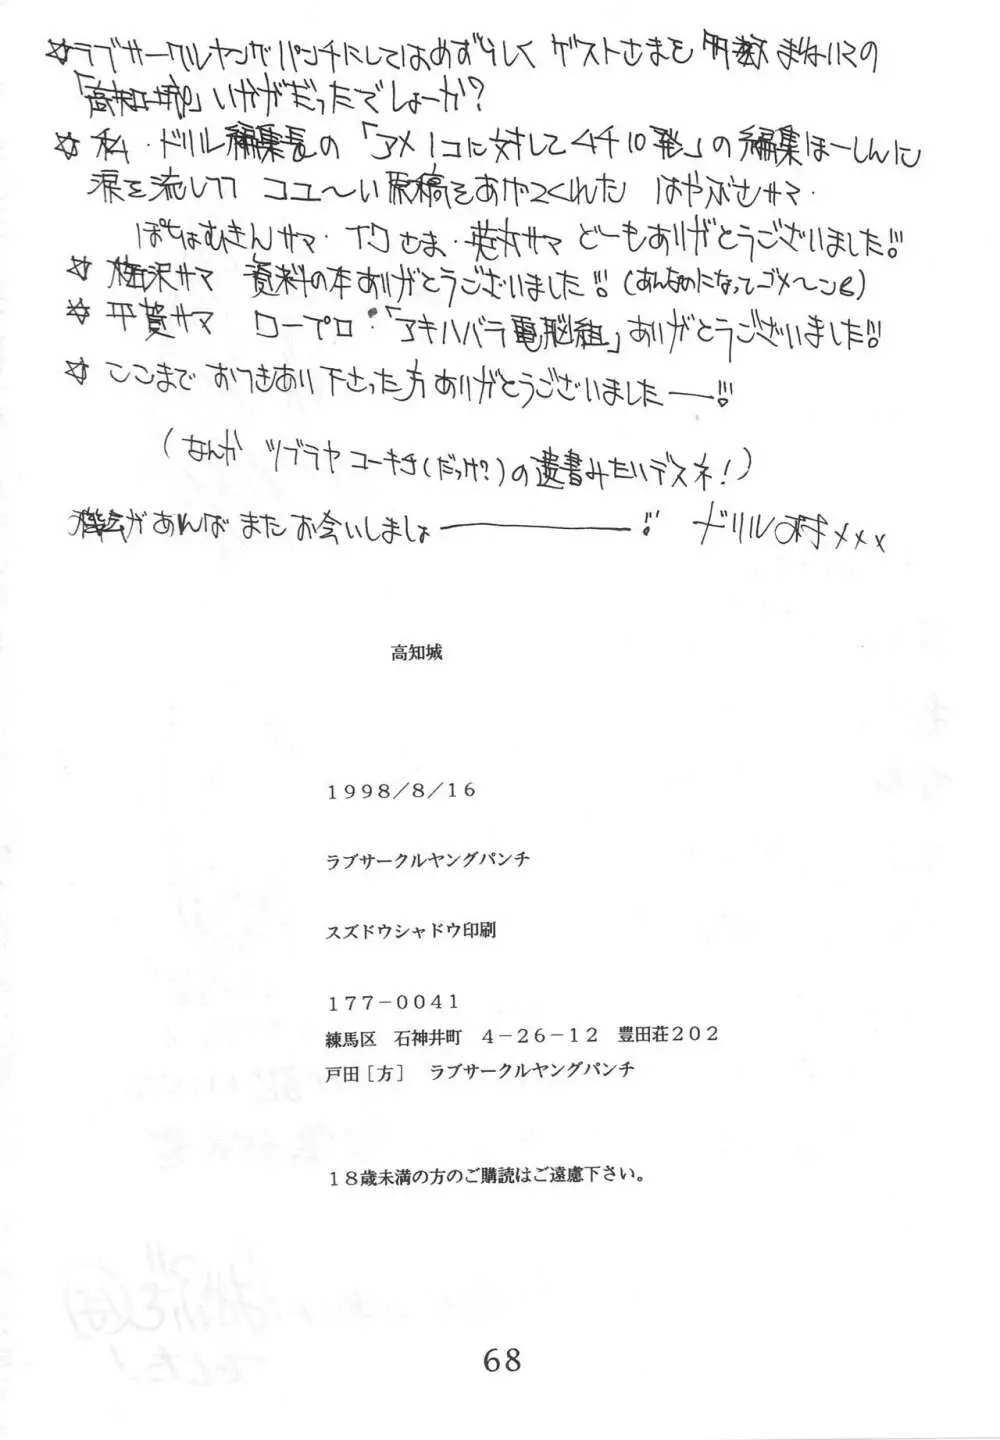 ☆ラブサークルヤングパンチにしてはめずらしく ゲストさまを 多数 まねいての
「高知城」いかがだったでしょーか?
☆ 私・ドリル編集長の「アメノコに対してムチ10発」の編集ほーしんに
涙を流しつつ コユ〜い原稿をあげてくれた はやぶさサマ・
ぽちはむきんサマ・イワさま・英太サマ どーもありがとうございました!!
☆ 梅沢サマ 資料の本ありがとうございました!!(あんなめになってゴメ〜ン)
☆ 平賀サマ ロープロ・「アキハバラ電脳組」ありがとうございました!!
☆ ここまで おつきあい下さった方ありがとうございました――!!
(なんか ツブラヤ コーキチ(だっけ?)の遺書みたいデスネ!)
機会があれば またお会いしましょ――――!! ドリル村×××
高知城
1998/8/16
ラブサークルヤングパンチ
スズドウシャドウ印刷
177-0041
練馬区 石神井町 4-26-12 豊田荘202
戸田[方] ラブサークルヤングパンチ
18歳未満の方のご購読はご遠慮下さい。
68